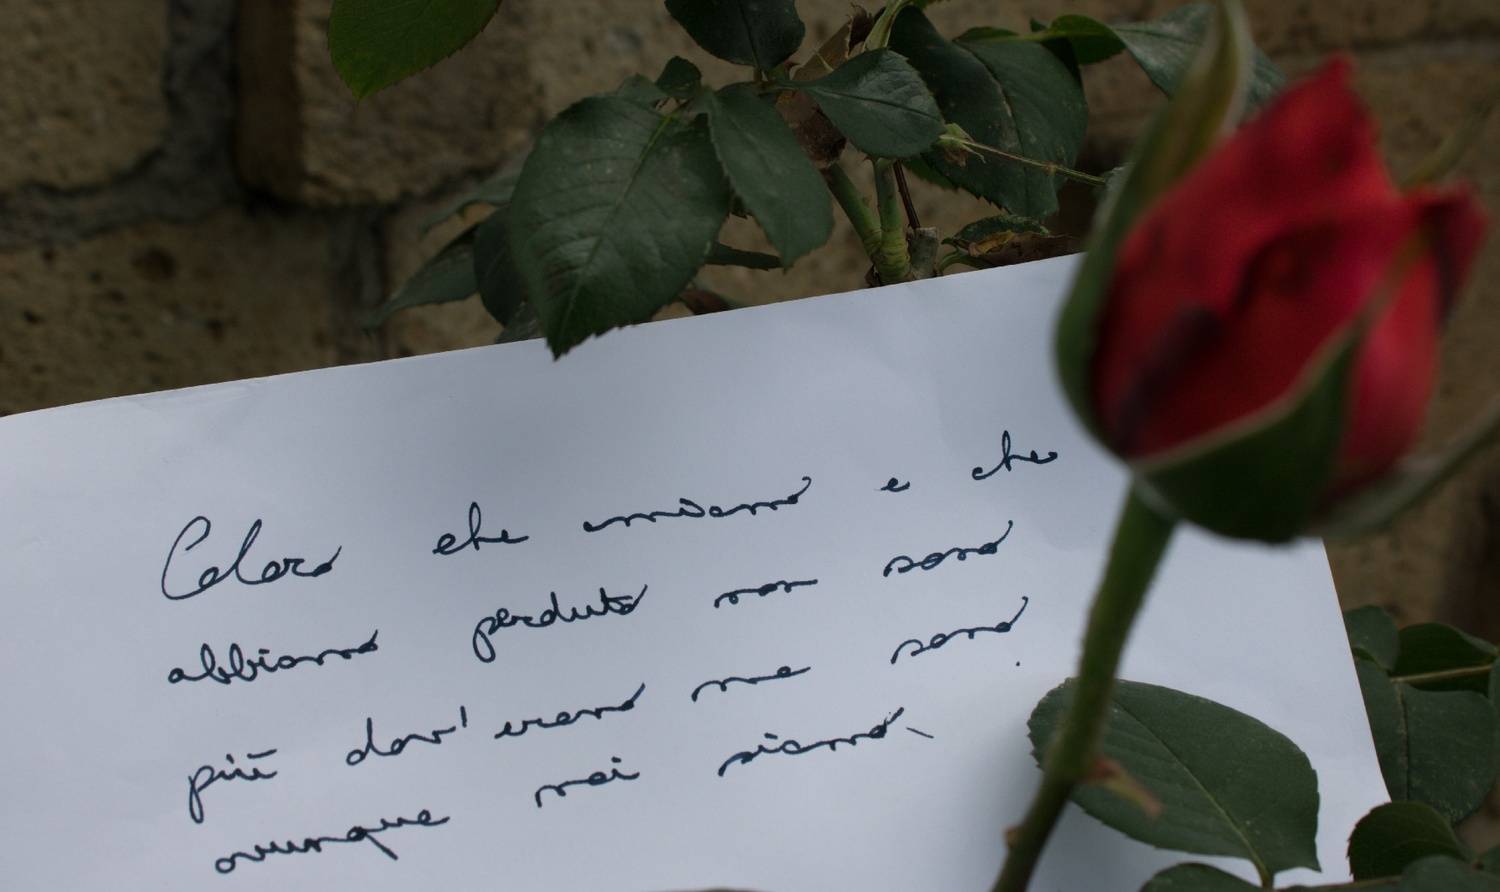 Coloro che amiamo e che
abbiamo perduto non sono
più dov'erano ma sono
ovunque noi siamo.